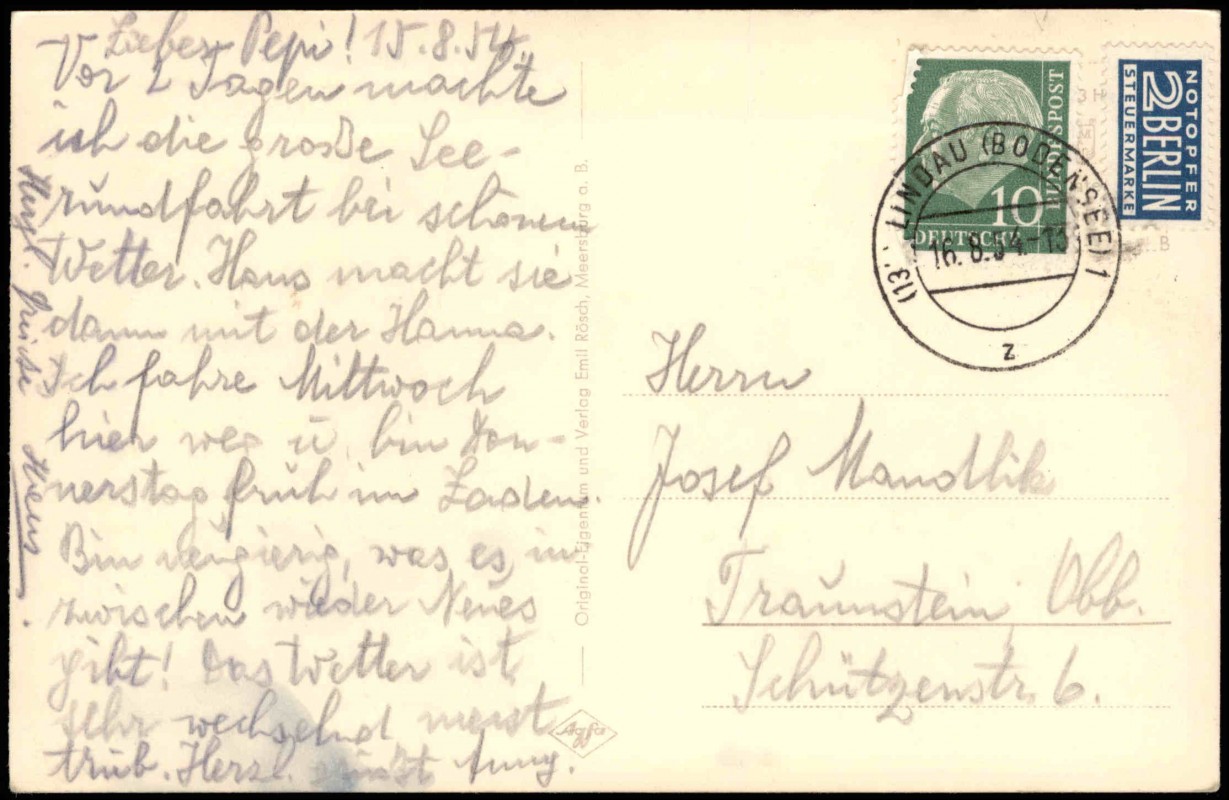 Lieber Pepi! 15.8.54
Vor 2 Tagen machte
ich die große See-
rundfahrt bei schönem
Wetter. Hans macht sie
dann mit der Hanna.
Ich fahre Mittwoch
hier weg u. bin Don-
nerstag früh im Laden.
Bin neugierig, was es in-
zwischen wieder Neues
gibt! Das Wetter ist
sehr wechselnd meist
trüb. Herzl. grüßt Anny.
Herzl. Grüße Hans
Original-Eigentum und Verlag Emil Rösch, Meersburg a. B.
Agfa
10
DEUTSCHE
BUNDESPOST
NOTOPFER
2 BERLIN
STEUERMARKE
LINDAU (BODENSEE) 1
16.8.54-13
z
Herrn
Josef Mandlik
Traunstein Obb.
Schützenstr. 6.